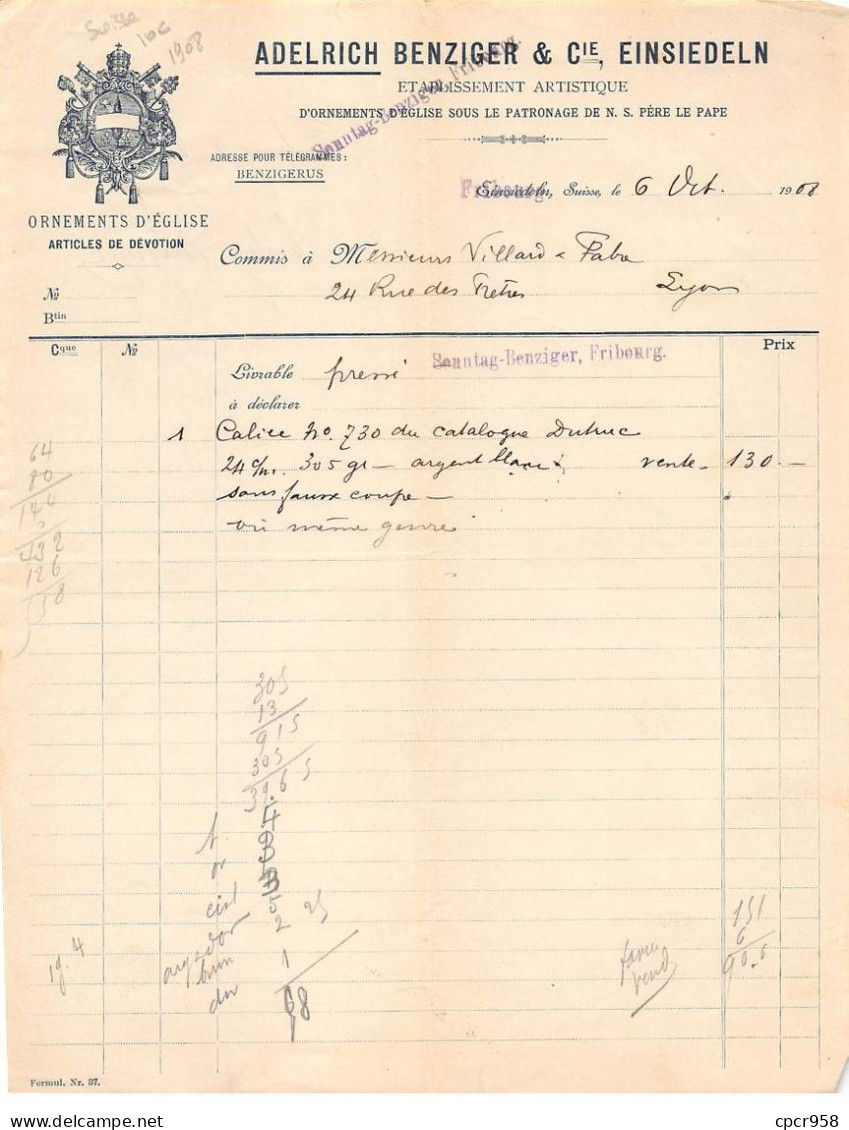 Suisse
1908
ADELRICH BENZIGER & CIE, EINSIEDELN
ETABLISSEMENT ARTISTIQUE
D'ORNEMENTS D'ÉGLISE SOUS LE PATRONAGE DE N. S. PÈRE LE PAPE
Sonntag-Benziger, Fribourg.
ADRESSE POUR TÉLÉGRAMMES:
BENZIGERUS
ORNEMENTS D'ÉGLISE
ARTICLES DE DÉVOTION
Fribourg
Einsiedeln, Suisse, le 6 Oct. 1908
Commis à Messieurs Villard &
24 Rue des Lyon
No
Btin
Cque No Prix
Livrable pressé Sonntag-Benziger, Fribourg.
à déclarer
1 Calice No. 730 du catalogue
24 c/m. 305 gr - argent blanc vente 130.—
sans fausse coupe —
même genre
64
432
126
305
13
915
305
3965
or
5
2 25
1
68
19.4
151
6
90.6
Formul. Nr. 37.
cpcr958